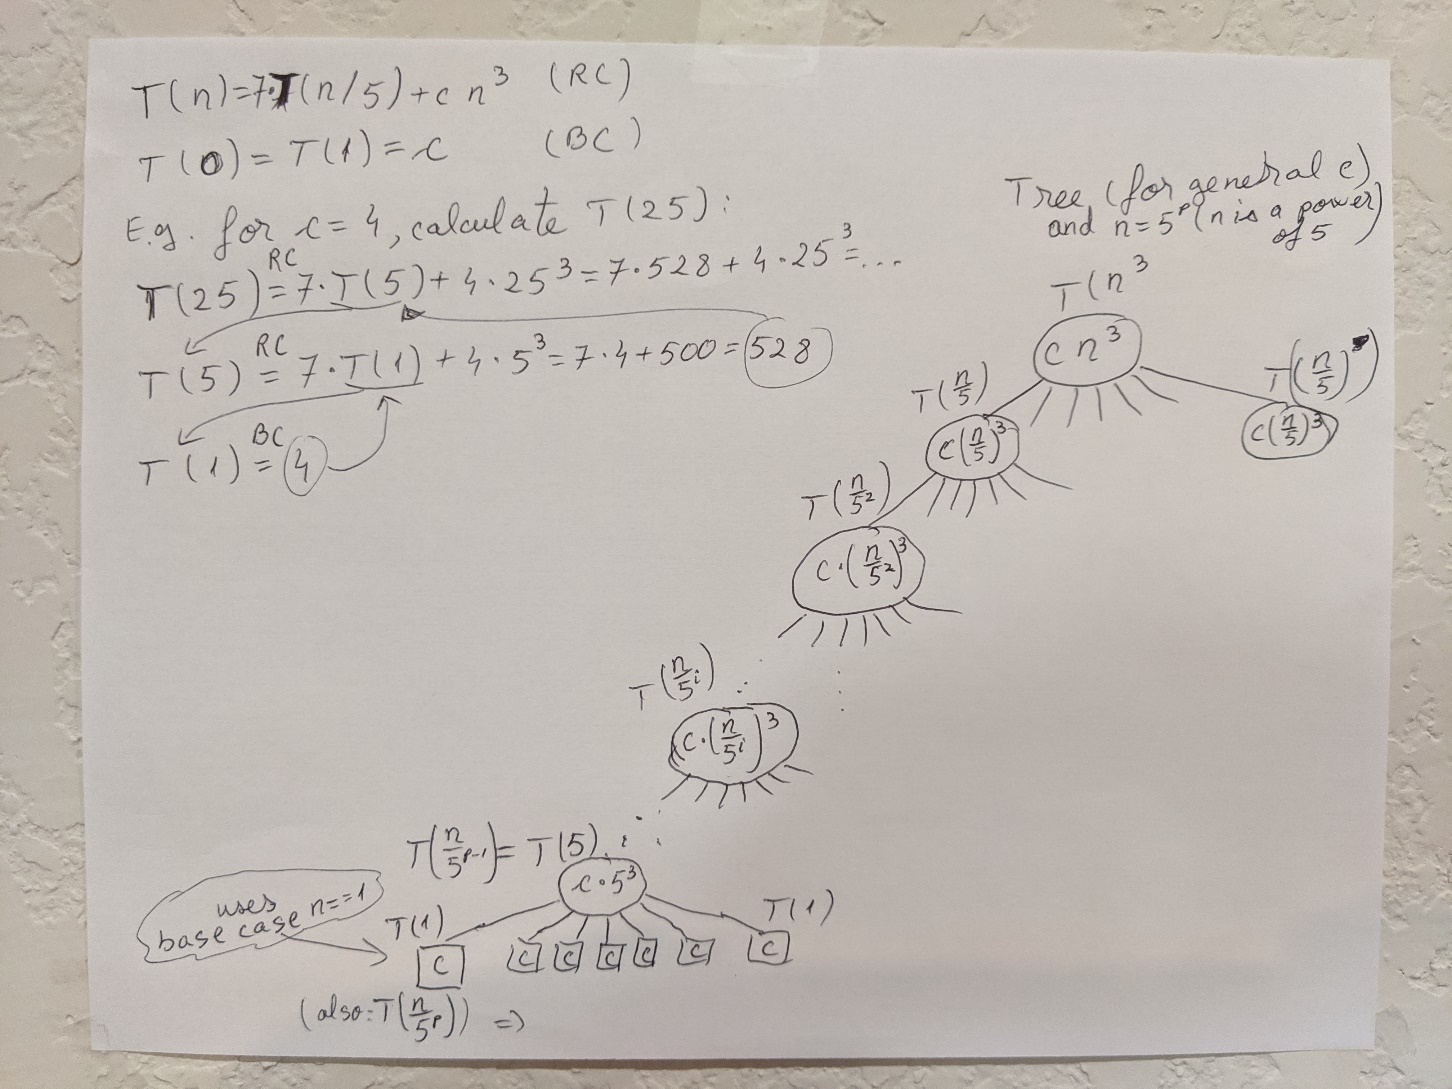 T(n)=7·T(n/5)+c n³ (RC)
T(0)= T(1)=c (BC)
E.g. for c=4, calculate T(25):
RC
T(25)=7·T(5)+4·25³=7·528+4·25³=...
RC
T(5)=7·T(1)+4·5³=7·4+500=528
BC
T(1)=4
Tree (for general c)
and n=5ᵖ (n is a power
of 5)
T(n³
c n³
T(n/5) T(n/5)
c(n/5)³ c(n/5)³
T(n/5²)
c·(n/5²)³
T(n/5ⁱ)
c·(n/5ⁱ)³
T(n/5ᵖ⁻¹)= T(5)
c·5³
uses
base case n==1
T(1) T(1)
c c c c c c c
(also: T(n/5ᵖ)) =>